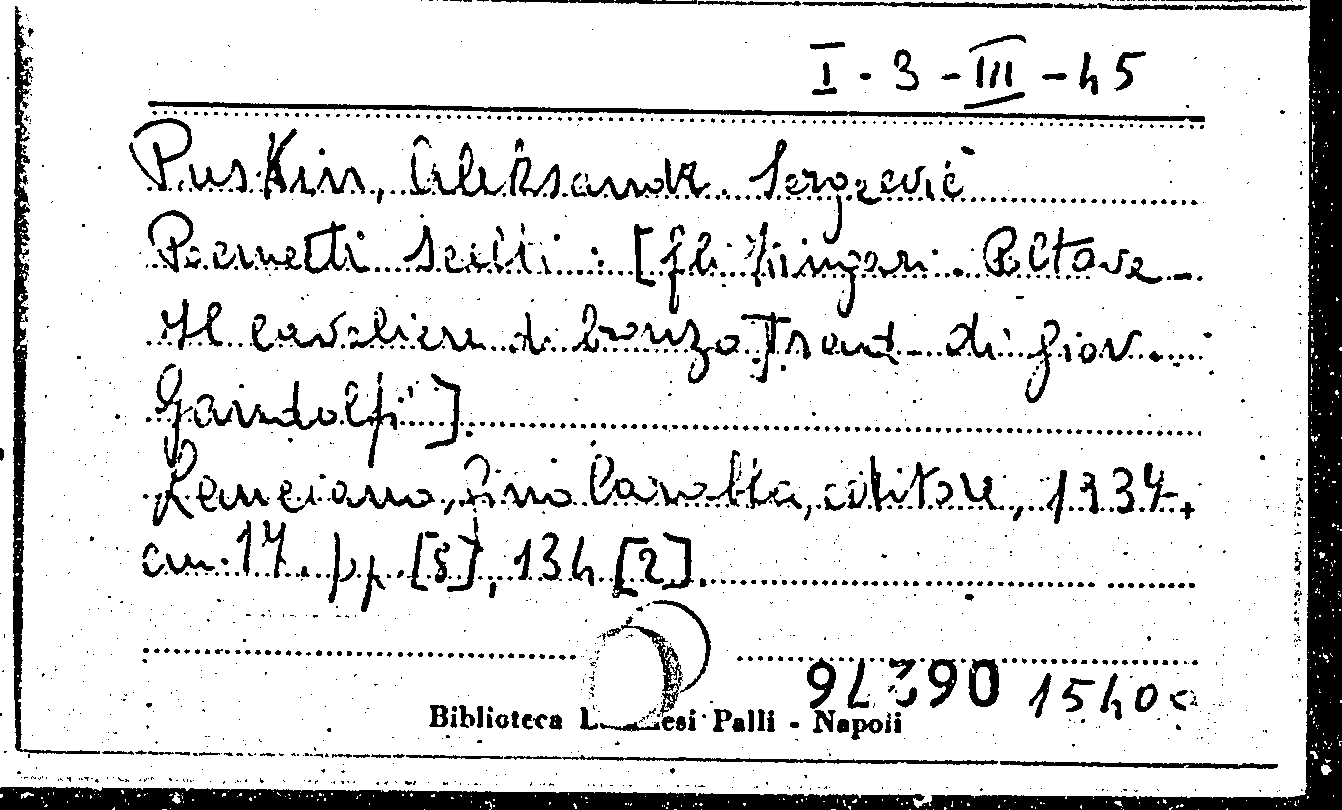 I - 3 - III - 45
Puskin, Aleksandr Sergeevič
Poemetti scelti : [Gli zingari. Poltava -
Il cavaliere di bronzo Trad. di Giov.
Gandolfi]
Lanciano, Gino Carabba, editore, 1937,
cm. 17. pp. [8], 134 [2].
15400
Biblioteca Palli - Napoli